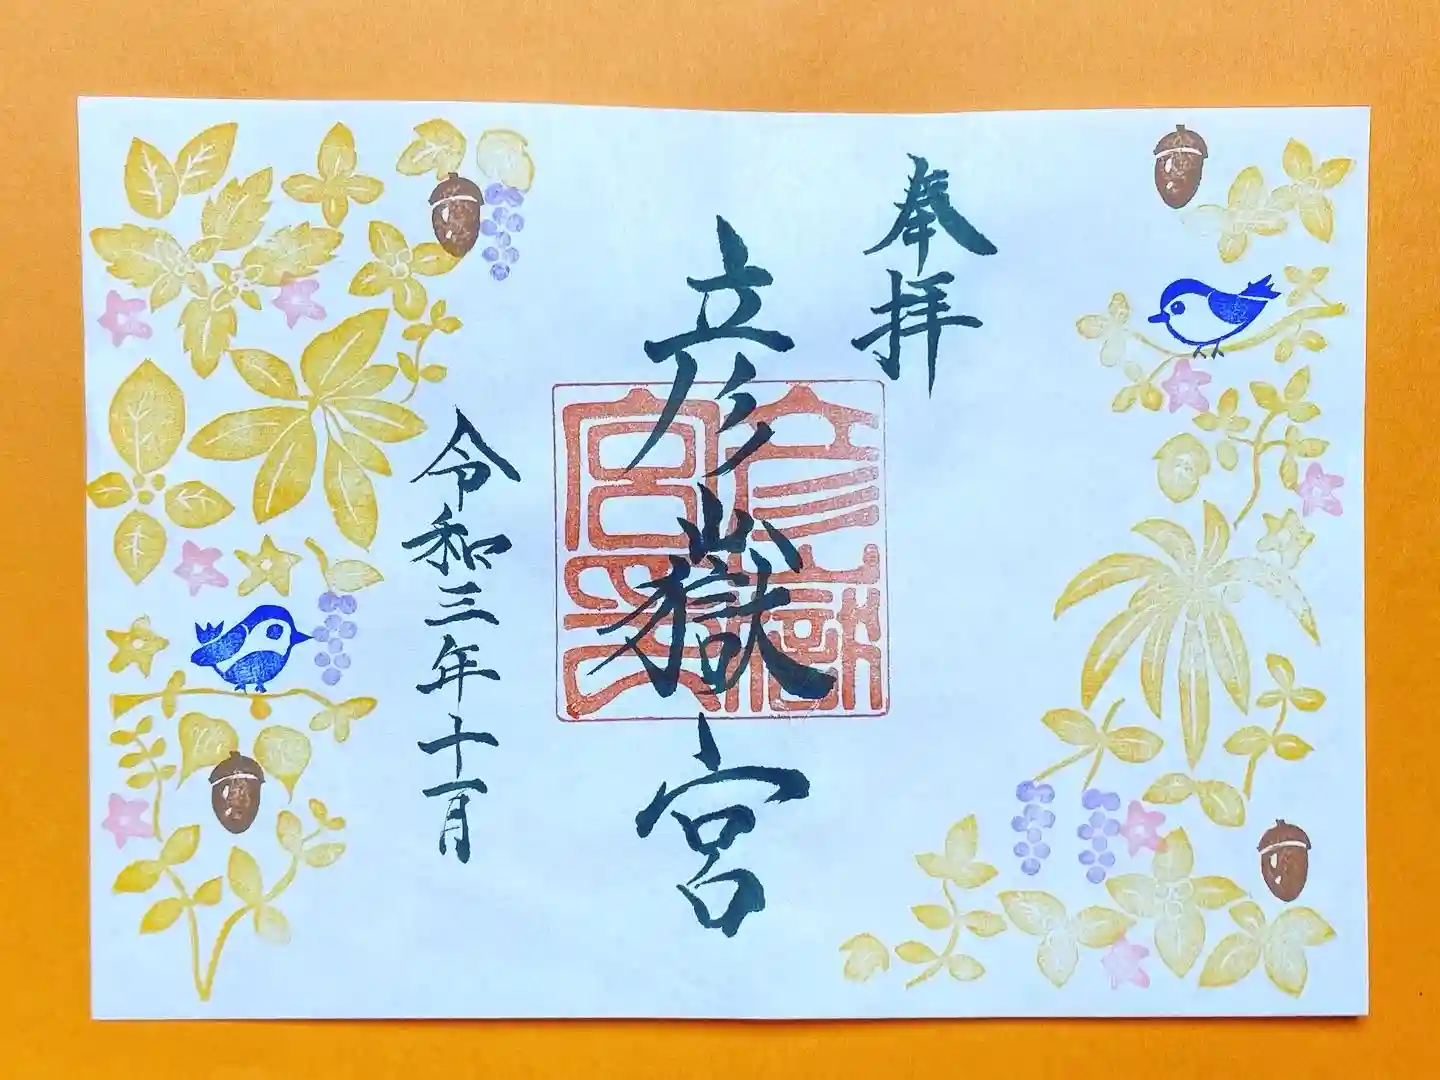 奉拝
彦嶽宮
令和三年十一月
彦嶽
宮印